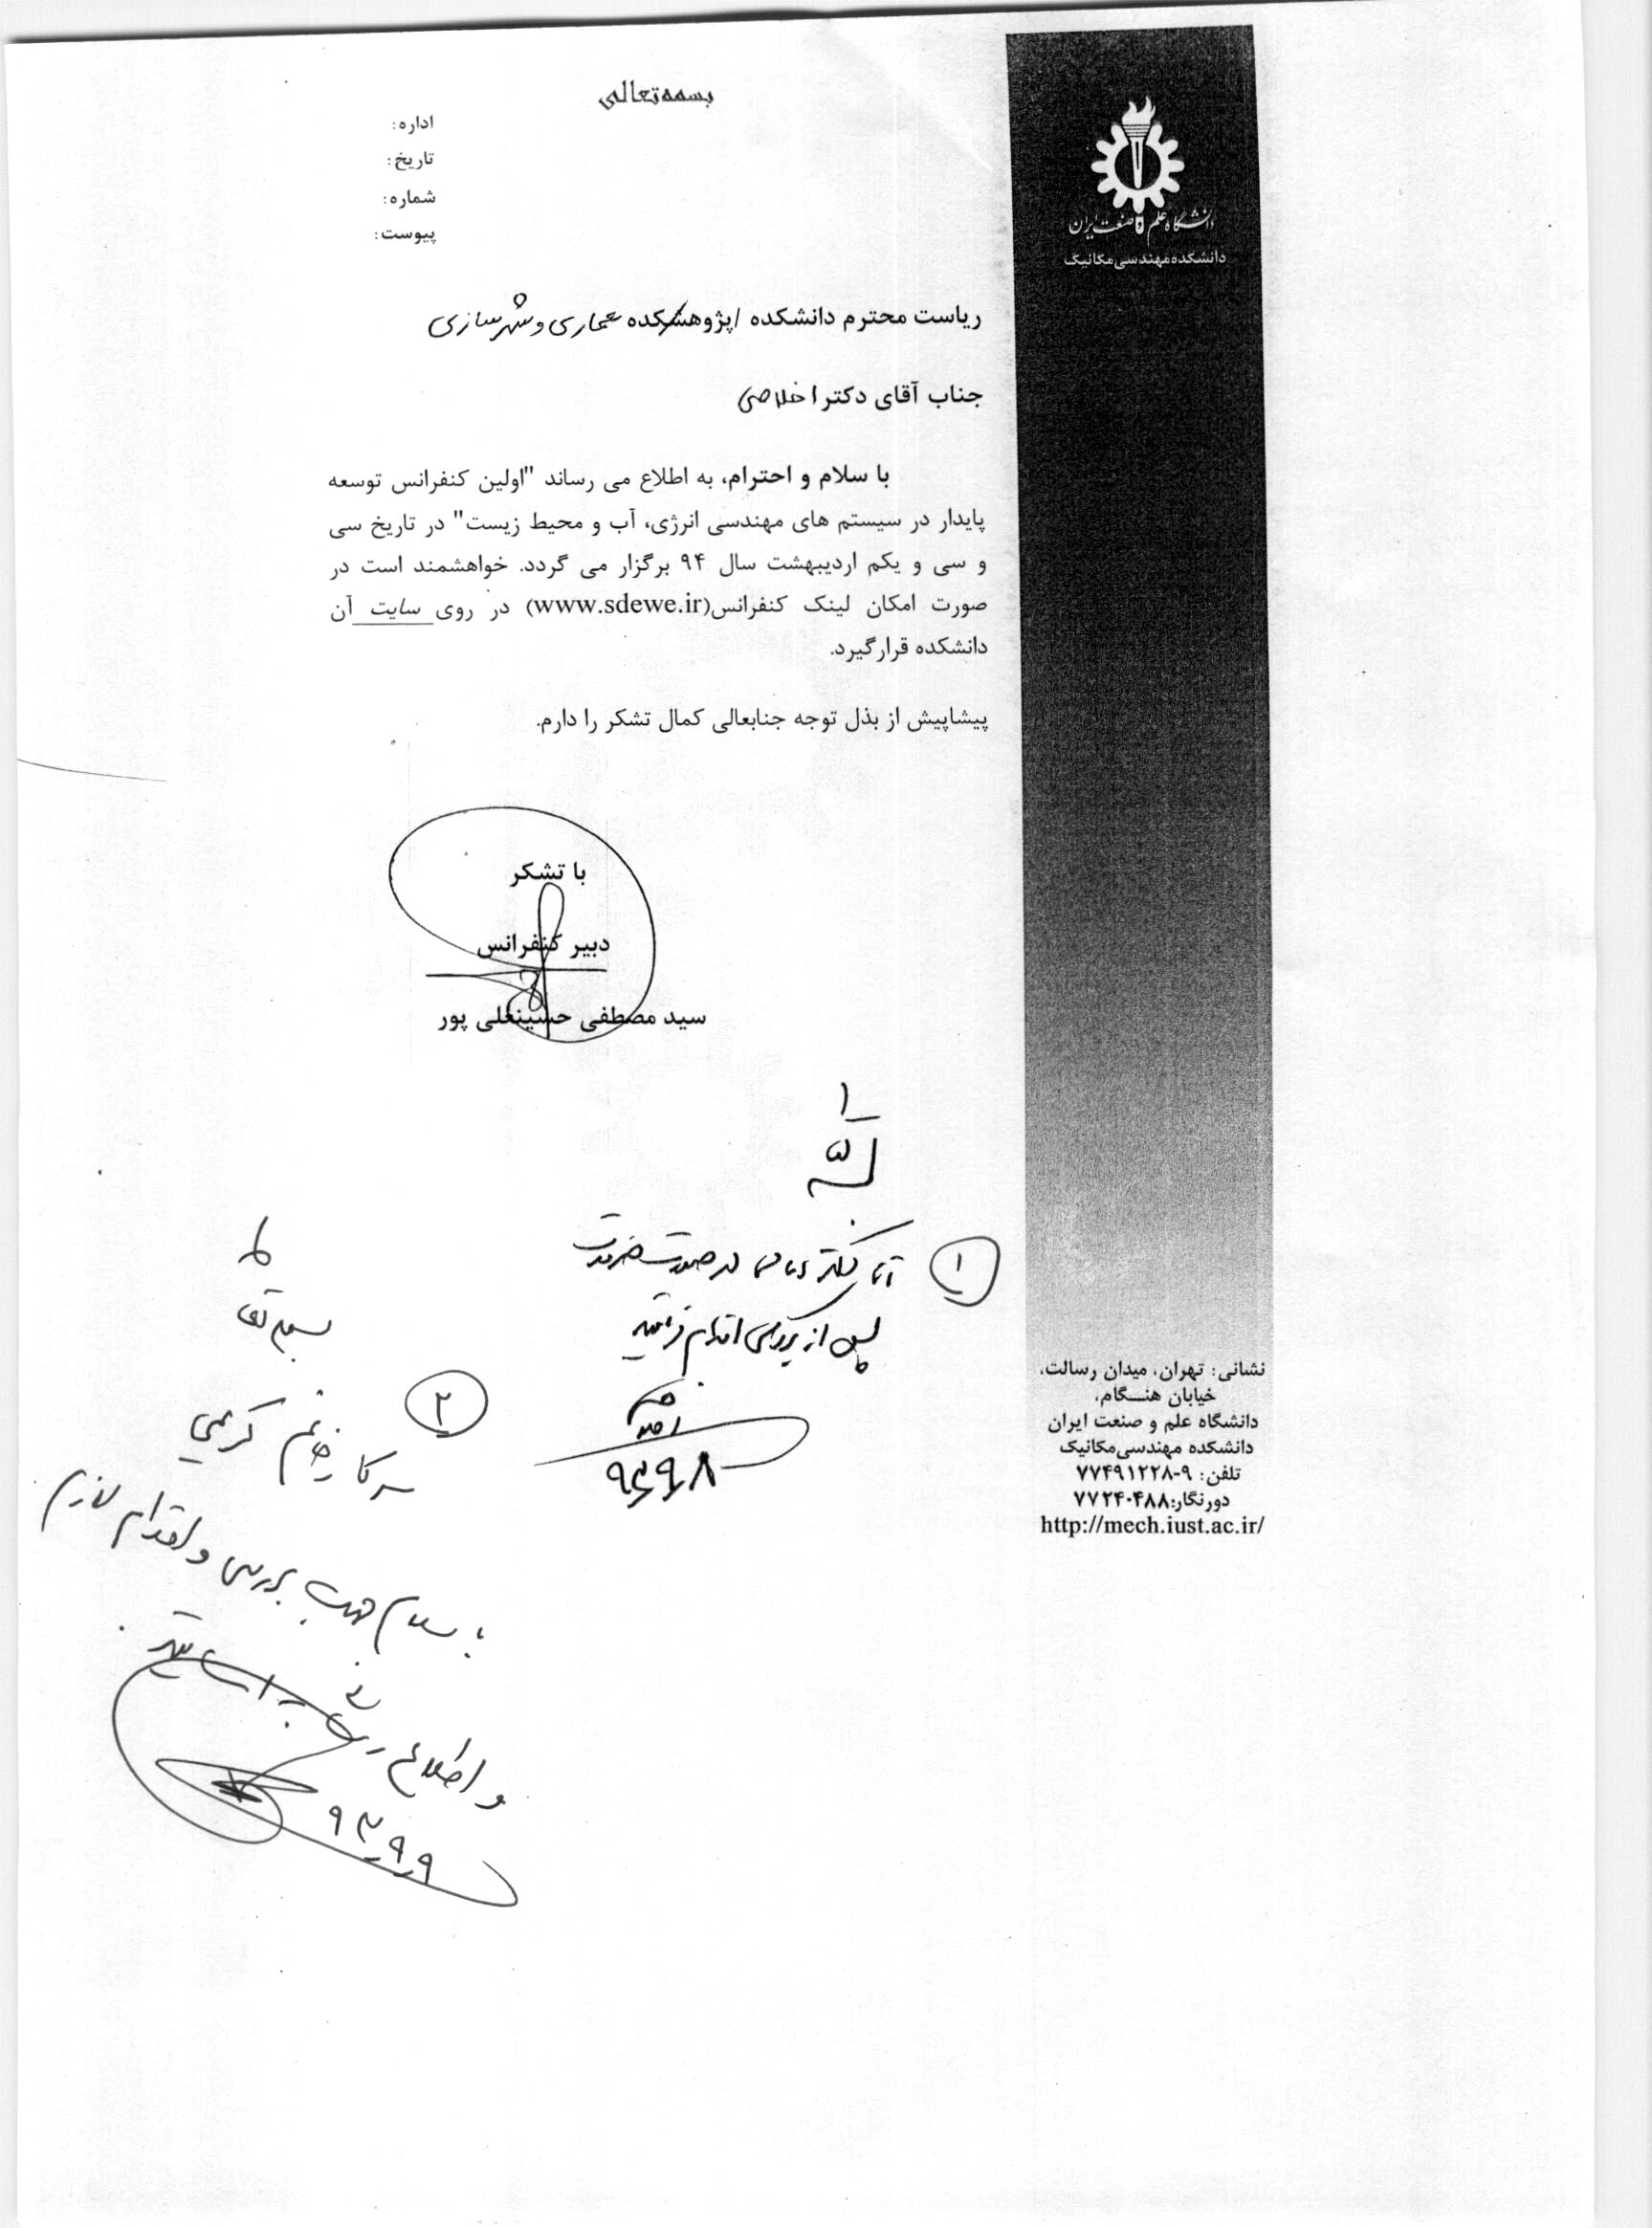 بسمه‌تعالی
اداره:
تاریخ:
شماره:
پیوست:
دانشگاه علم و صنعت ایران
دانشکده مهندسی مکانیک
ریاست محترم دانشکده /پژوهشکده معماری و شهرسازی
جناب آقای دکتر اخلاصی
با سلام و احترام، به اطلاع می رساند "اولین کنفرانس توسعه
پایدار در سیستم های مهندسی انرژی، آب و محیط زیست" در تاریخ سی
و سی و یکم اردیبهشت سال ۹۴ برگزار می گردد. خواهشمند است در
صورت امکان لینک کنفرانس(www.sdewe.ir) در روی سایت آن
دانشکده قرارگیرد.
پیشاپیش از بذل توجه جنابعالی کمال تشکر را دارم.
با تشکر
دبیر کنفرانس
سید مصطفی حسینعلی پور
۱
در صورت ضرورت
پس از بررسی اقدام فرمائید
۹۳٫۹٫۸
بسمه تعالی
۲
سرکار خانم کریمی
با سلام جهت بررسی و اقدام لازم
و اطلاع رسانی به اساتید
۹۳٫۹٫۹
نشانی: تهران، میدان رسالت،
خیابان هنگام،
دانشگاه علم و صنعت ایران
دانشکده مهندسی مکانیک
تلفن: ۹-۷۷۴۹۱۲۲۸
دورنگار:۷۷۲۴۰۴۸۸
http://mech.iust.ac.ir/